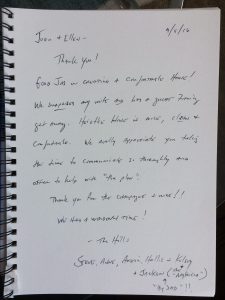 9/5/16
Juan + Ellen -
Thank You!
Good Job on creating a Comfortable Home!
We surprised my wife and had a great family
get away. House is nice, clean &
Comfortable. We really appreciate you taking
the time to communicate so thoroughly and
offer to help with "the plan".
Thank you for the champagne & wine!!
We had a wonderful time!
- The Hills
Steve, Hallie +
+ Jackson (the
"Big DAD"!!